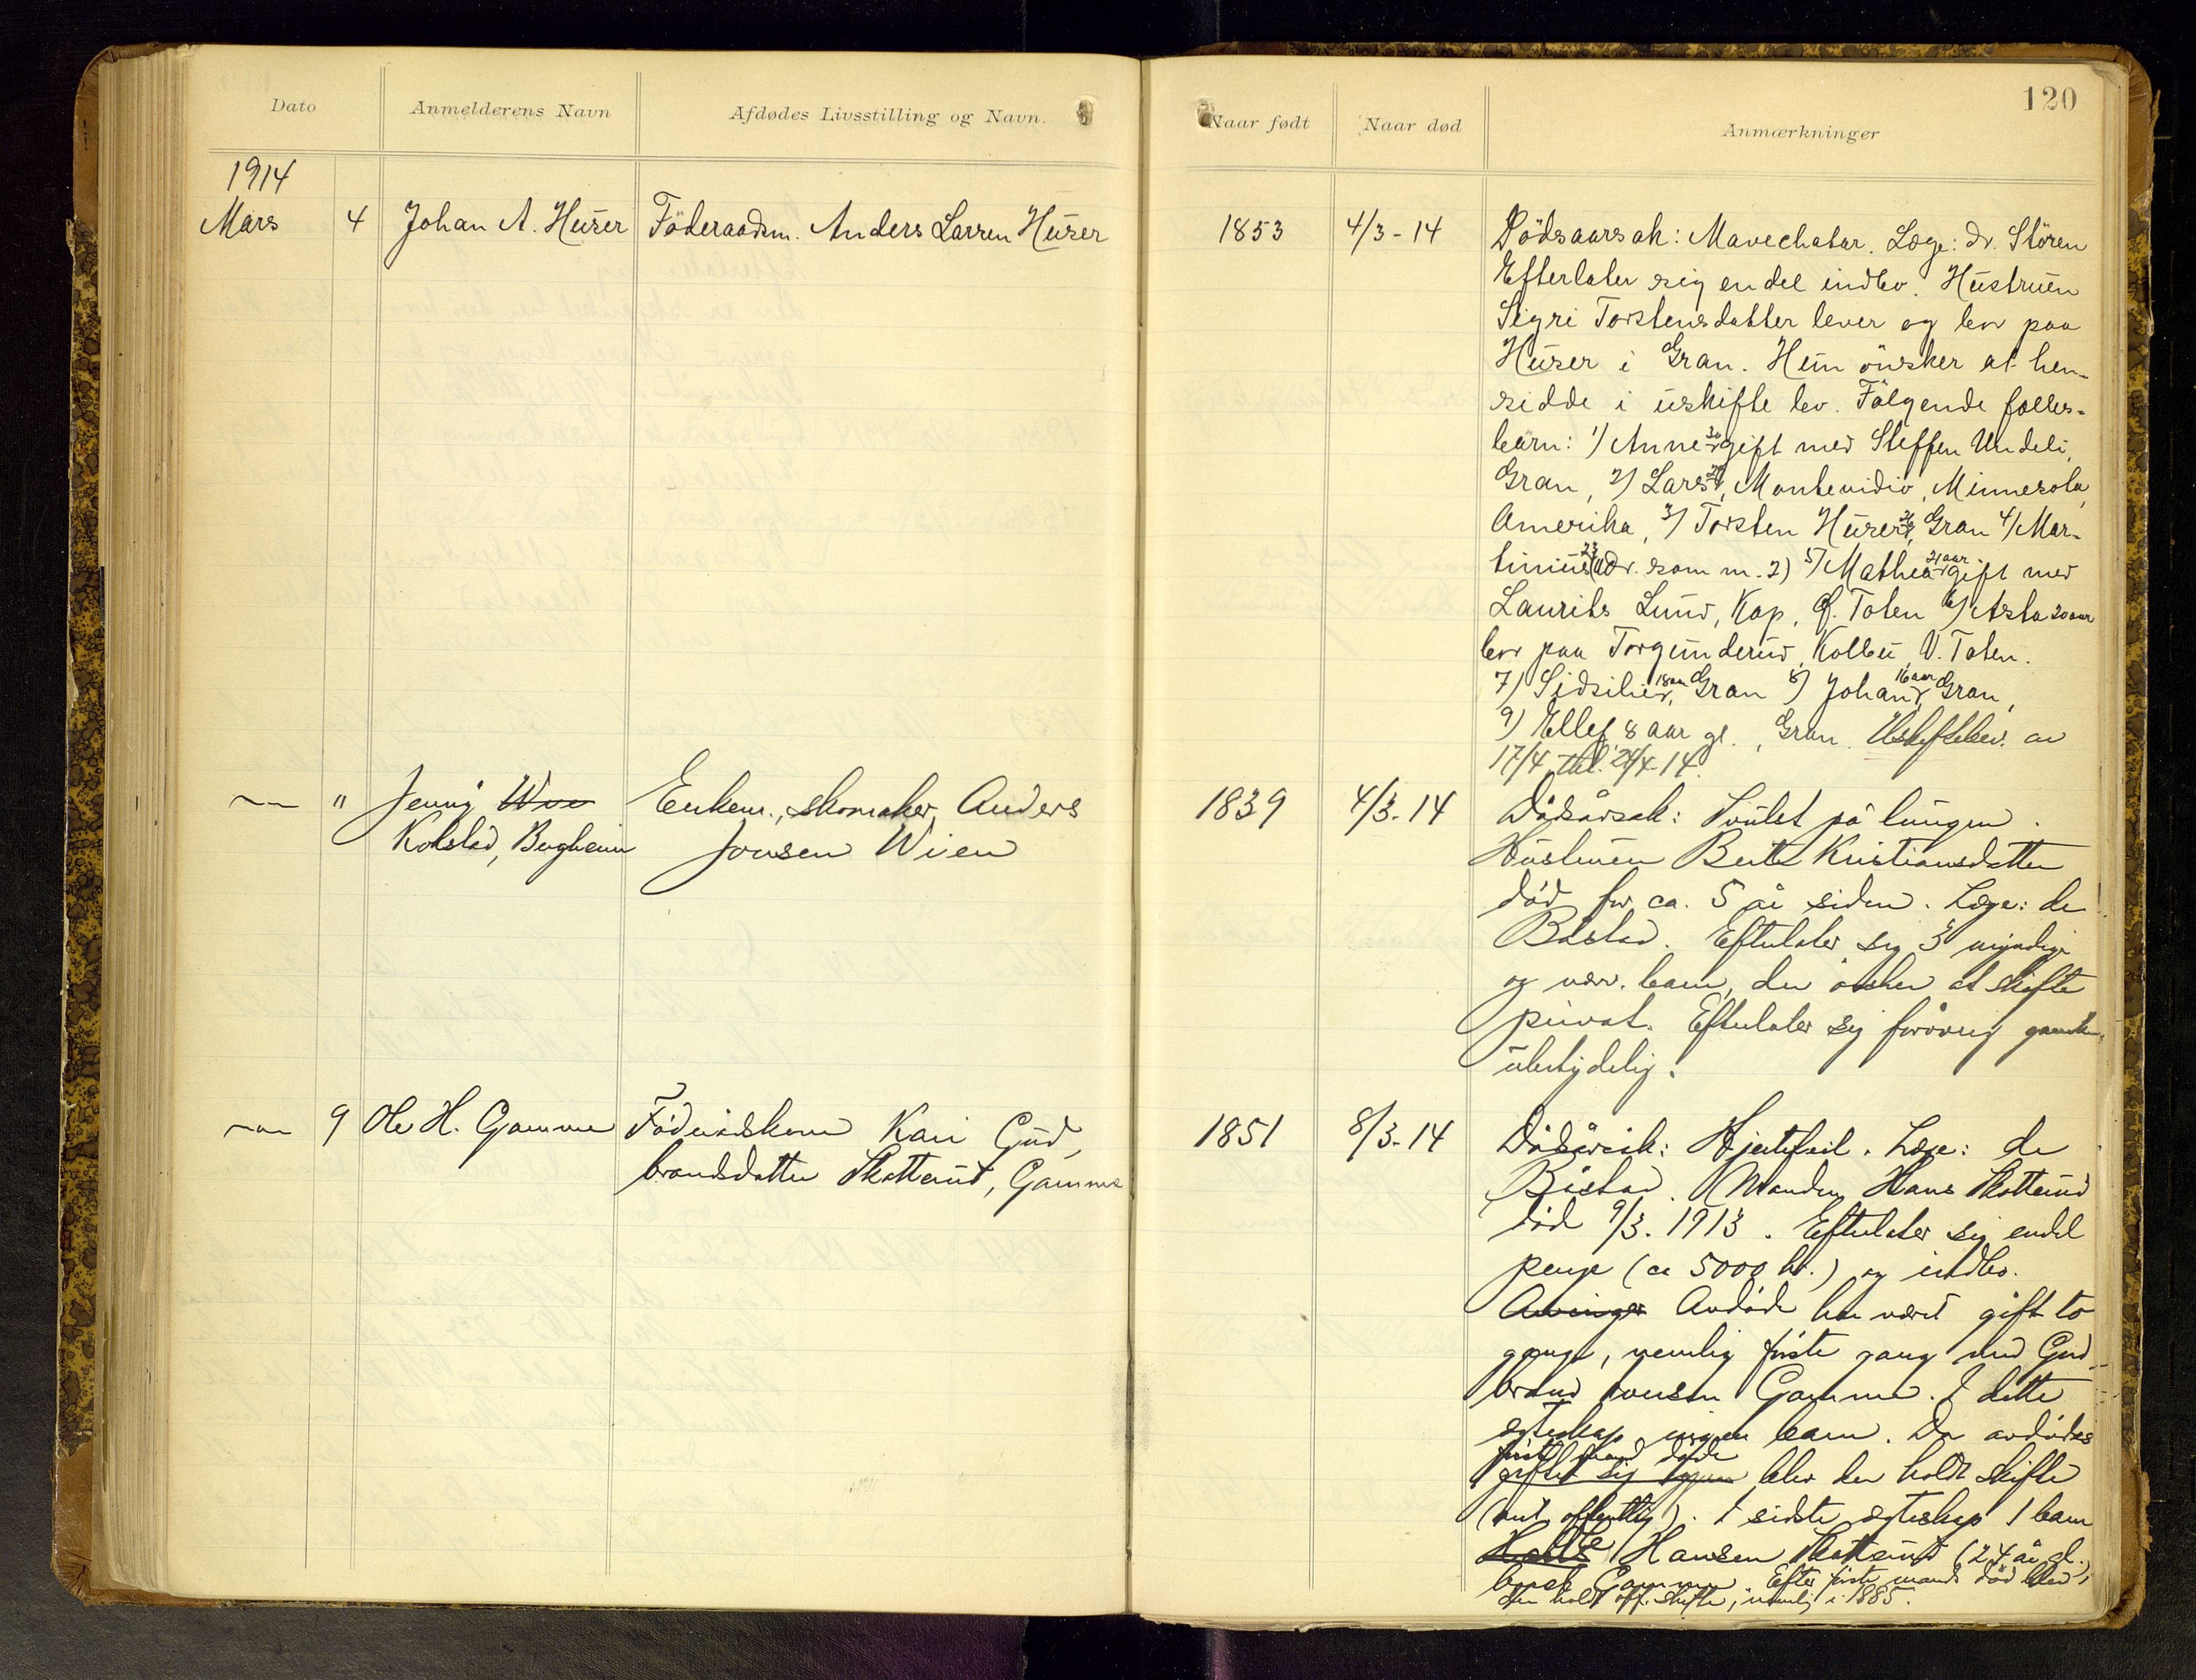 120
Dato Anmelderens Navn Afdødes Livsstilling og Navn. Naar født Naar død Anmærkninger
1914
Mars 4 Johan A. Huser Föderaadsm. Anders Larsen Huser 1853 4/3-14 Dödsaarsak: Mavekatar. Læge: dr. Stören
Efterlater sig endel indbo. Hustruen
Sigri Torstensdatter lever og bor paa
Huser i Gran. Hun önsker at hen-
sidde i uskifte bo. Fölgende felles-
barn: 1) Anne gift med Steffen Undeli,
Gran, 2) Lars, Montevidio, Minnesota,
Amerika, 3) Torsten Huser, Gran 4) Mar-
tinius 23 (Adr. som nr. 2) 5) Mathea 21 aar gift med
Laurits Lund, Kap, Ö. Toten 6) Asta 20 aar
bor paa Torgunderud, Kolbu, V. Toten.
7) Sidsilie 18 aar, Gran 8) Johan 16 aar, Gran,
9) Ellef 8 aar gl., Gran. Uskiftebev. av
17/4 thl. 24/4-14.
" Jenny Wien
Kolstad, Bergheim
Enkem., skomaker Anders
Jonsen Wien
1839 4/3-14 Dødsårsak: Svulst på lungen.
Hustruen Berte Kristiansdatter
død for ca. 5 år siden. Læge: dr.
Båstad. Efterlater sig 3 myndige
og nærv. barn, der ønsker at skifte
privat. Efterlater sig forøvrig ganske
ubetydelig.
9 Ole H. Gamme Föderådskone Kari Gud-
brandsdatter Skatterud, Gamme
1851 8/3-14 Dødsårsak: Hjertefeil. Læge: dr
Båstad. Manden Hans Skatterud
død 9/3. 1913. Efterlater sig endel
penge (ca 5000 kr.) og indbo.
Avdøde har været gift to
gange, nemlig første gang med Gud-
brand Iversen Gamme. I dette
egteskap ingen barn. Da avdødes
første mand døde
giftet sig igjen blev der holdt skifte
(ant. offentlig). I sidste egteskap 1 barn
Hansen Skatterud (24 år gl.)
Gamme. Efter første mands død blev
der holdt off. skifte, nemlig i 1885.